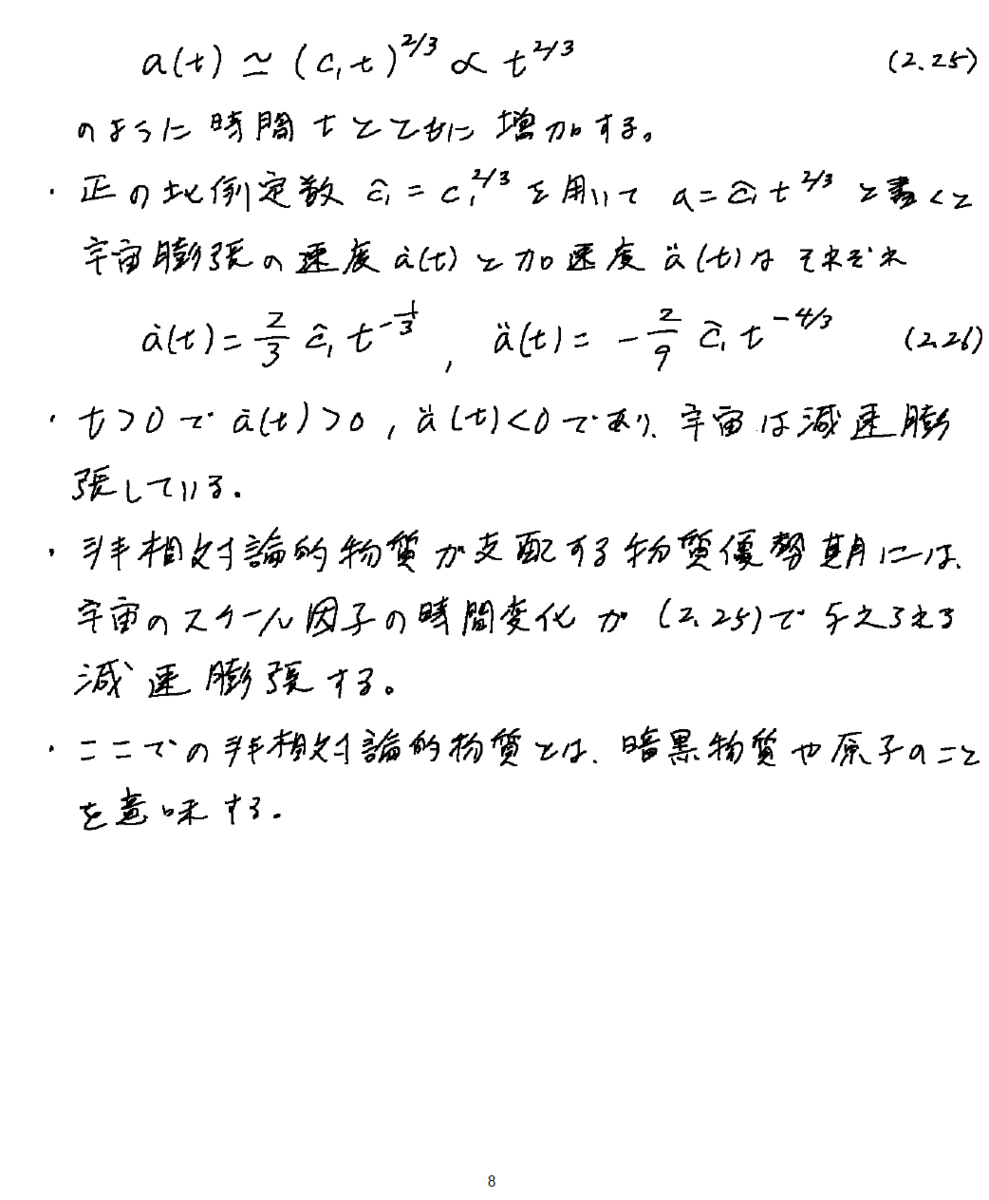 a(t) ≃ (c₁t)^{2/3} ∝ t^{2/3} (2.25)
のように時間 t とともに 増加する。
・正の比例定数 ĉ₁ = c₁^{2/3} を用いて a = ĉ₁ t^{2/3} と書くと
宇宙膨張の速度 ȧ(t) と加速度 ä(t) は それぞれ
ȧ(t) = 2/3 ĉ₁ t^{-1/3} , ä(t) = -2/9 ĉ₁ t^{-4/3} (2.26)
・t>0 で ȧ(t)>0 , ä(t)<0 であり、宇宙は減速膨
張している。
・非相対論的物質が支配する物質優勢期には、
宇宙のスケール因子の時間変化が (2.25)で与えられる
減速膨張する。
・ここでの非相対論的物質とは、暗黒物質や原子のこと
を意味する。
8